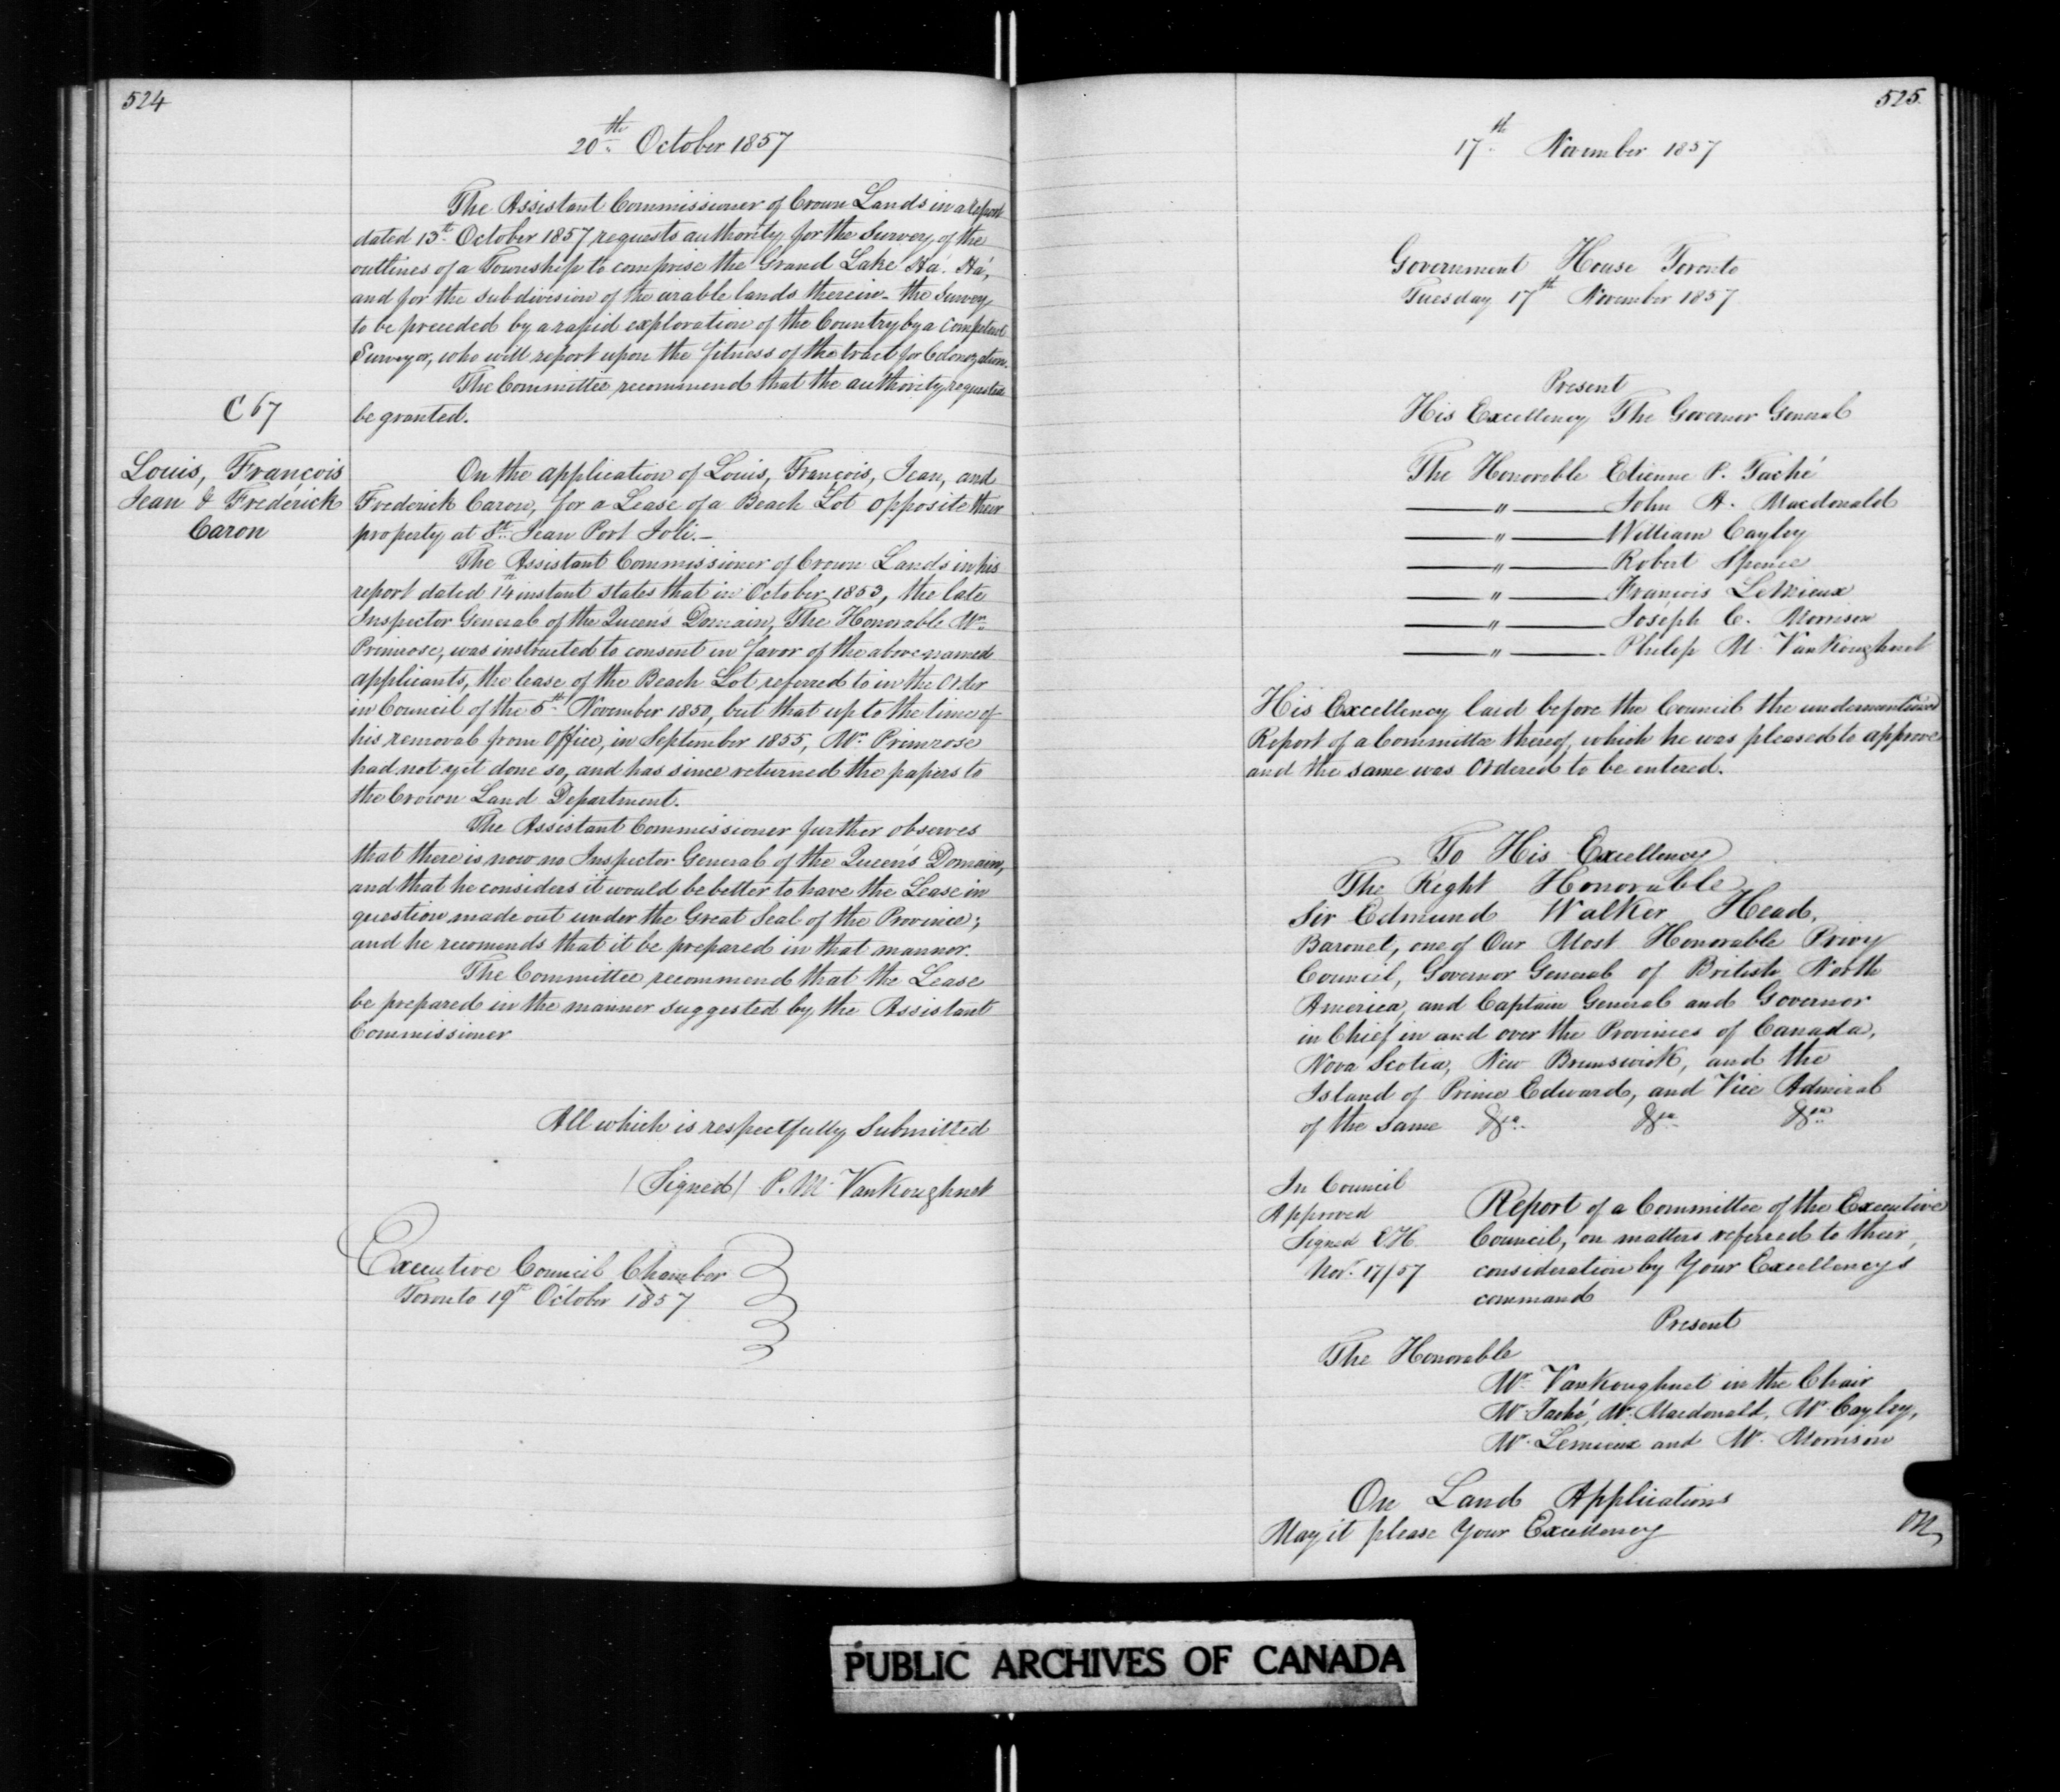 524
20th. October 1857
The Assistant Commissioner of Crown Lands in a Report
dated 13th. October 1857 requests authority for the Survey, of the
outlines of a Township to comprise the Grand Lake Ha'. Ha',
and for the subdivision of the arable lands therein - the Survey
to be preceded by a rapid exploration of the Country by a competent
Surveyor, who will report upon the fitness of the tract for Colonization.
The Committee recommend that the authority requested
be granted.
C 67
Louis, François
Jean & Frederick
Caron
On the application of Louis, François, Jean, and
Frederick Caron, for a Lease of a Beach Lot opposite their
property at St. Jean Port Joli. -
The Assistant Commissioner of Crown Lands in his
report dated 14th instant states that in October 1853, the late
Inspector General of the Queen's Domain, The Honorable Mr.
Primrose, was instructed to consent in favor of the above named
applicants, the lease of the Beach Lot referred to in the Order
in Council of the 5th. November 1850, but that up to the time of
his removal from Office, in September 1855, Mr. Primrose
had not yet done so, and has since returned the papers to
the Crown Land Department.
The Assistant Commissioner further observes
that there is now no Inspector General of the Queen's Domain,
and that he considers it would be better to have the Lease in
question made out under the Great Seal of the Province;
and he recomends that it be prepared in that mannor.
The Committee recommend that the Lease
be prepared in the manner suggested by the Assistant
Commissioner
All which is respectfully Submitted
(Signed) P. M. VanKoughnet
Executive Council Chamber
Toronto 19th October 1857
525.
17th. November 1857
Government House Toronto
Tuesday 17th November 1857
Present
His Excellency The Governor General
The Honorable Etienne P. Taché
— " — John A. Macdonald
— " — William Cayley
— " — Robert Spence
— " — François LeMieux
— " — Joseph C. Morrison
— " — Philip M. VanKoughnet
His Excellency laid before the Council the undermentioned
Report of a Committee thereof, which he was pleased to approve
and the same was Ordered to be entered.
To His Excellency
The Right Honorable
Sir Edmund Walker Head,
Baronet, one of Our Most Honorable Privy
Council, Governor General of British North
America, and Captain General and Governor
in Chief in and over the Provinces of Canada,
Nova Scotia, New Brunswick, and the
Island of Prince Edward, and Vice Admiral
of the same &ca. &ca. &ca.
In Council
Approved
Signed E H.
Nov. 17/57
Report of a Committee of the Executive
Council, on matters referred to their
consideration by Your Excellency's
command
Present
The Honorable
Mr. VanKoughnet in the Chair
Mr. Taché, Mr. Macdonald, Mr. Cayley,
Mr. Lemieux and Mr. Morrison
On Land Applications
May it please Your Excellency
On
PUBLIC ARCHIVES OF CANADA